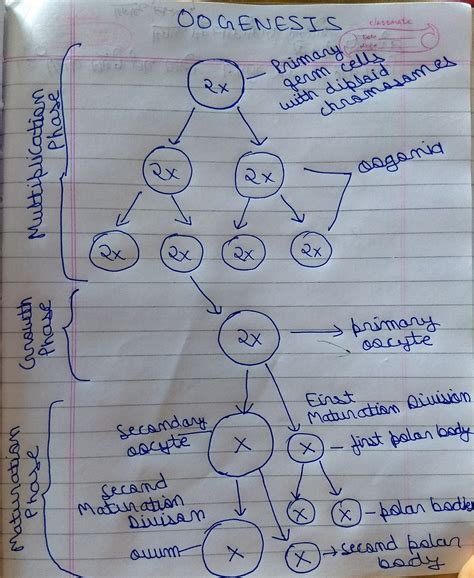 OOGENESIS
classmate
Date
Page
Multiplication
Phase
2x
Primary
germ cells
with diploid
chromosomes
2x
2x
oogonia
2x
2x
2x
2x
Growth
Phase
2x
primary
oocyte
Maturation
Phase
Secondary
oocyte
x
First
Maturation Division
x
first polar body
Second
Maturation
Division
x
x
polar bodies
ovum
x
x
second polar
body